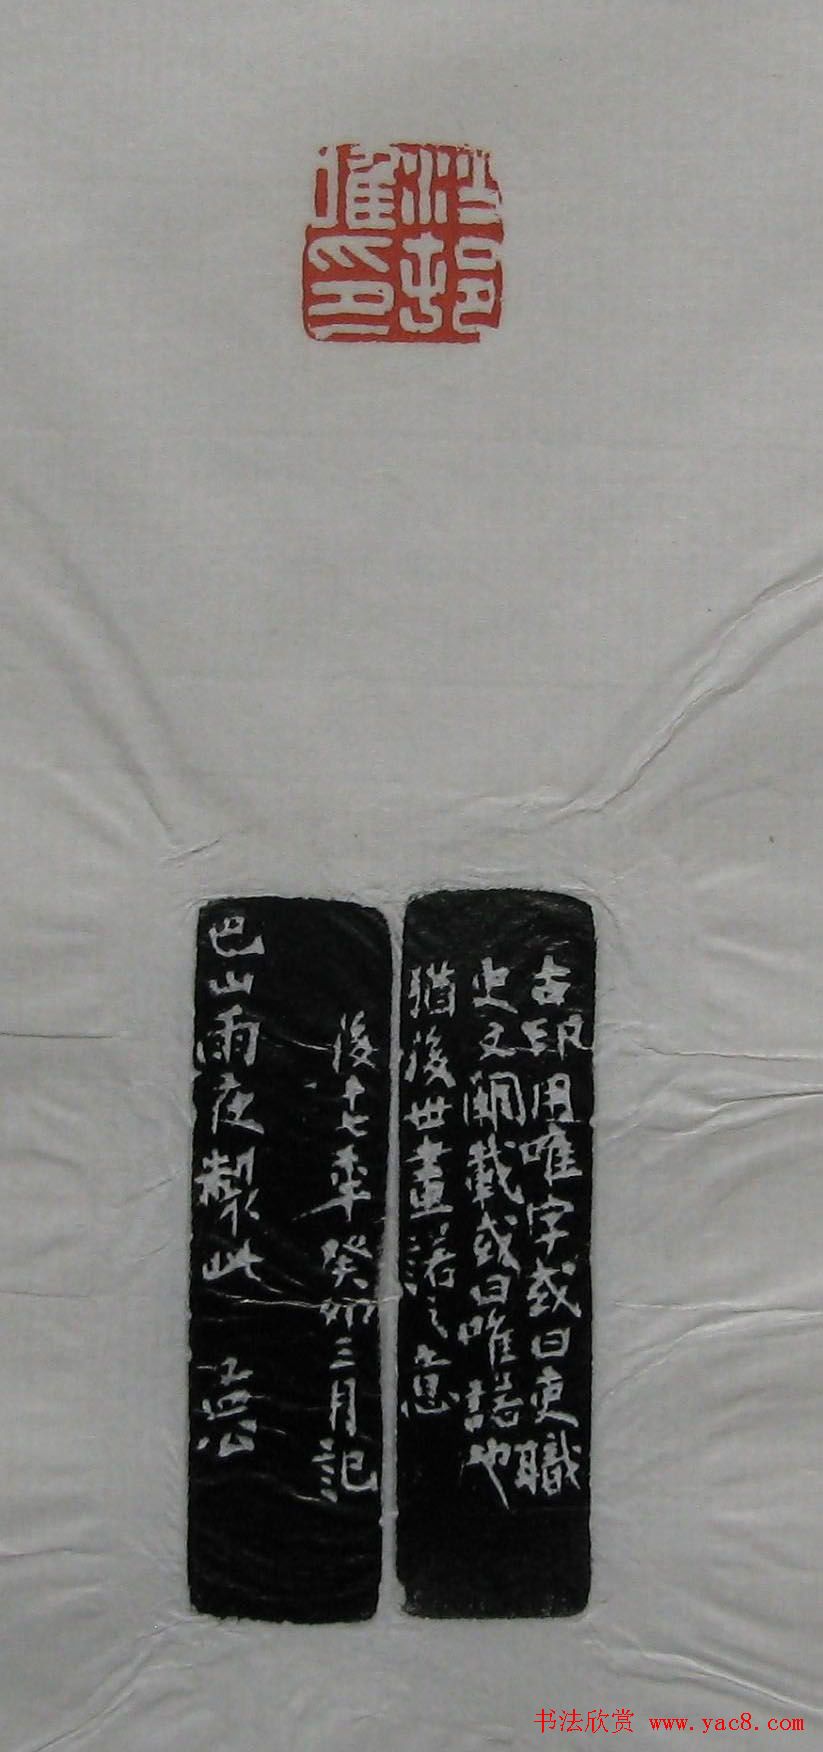 沙邨唯印
古印用唯字或曰吏職
史文闕載或曰唯諾也
猶後世畫諾之意
後十七年癸卯三月記
巴山雨夜製此
书法欣赏 www.yac8.com